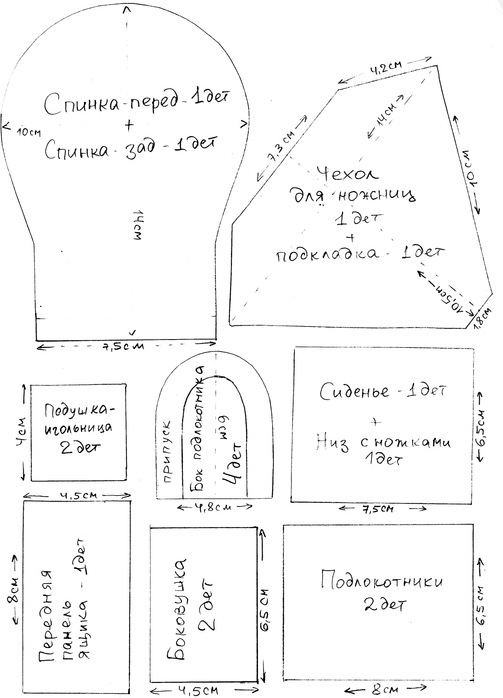 Спинка-перед-1дет
+
Спинка-зад-1дет
10см
14см
7,5см
4,2см
7,3см
14см
10см
Чехол
для ножниц
1дет
+
подкладка-1дет
10,5см
1.8см
Подушка-
игольница
2дет
4см
4,5см
припуск
Бок подлокотника
6см
4дет
4,8см
Сиденье-1дет
+
Низ с ножками
1дет
6,5см
7,5см
Передняя
панель
ящика-1дет
8см
Боковушка
2дет
6,5см
4,5см
Подлокотники
2дет
6,5см
8см